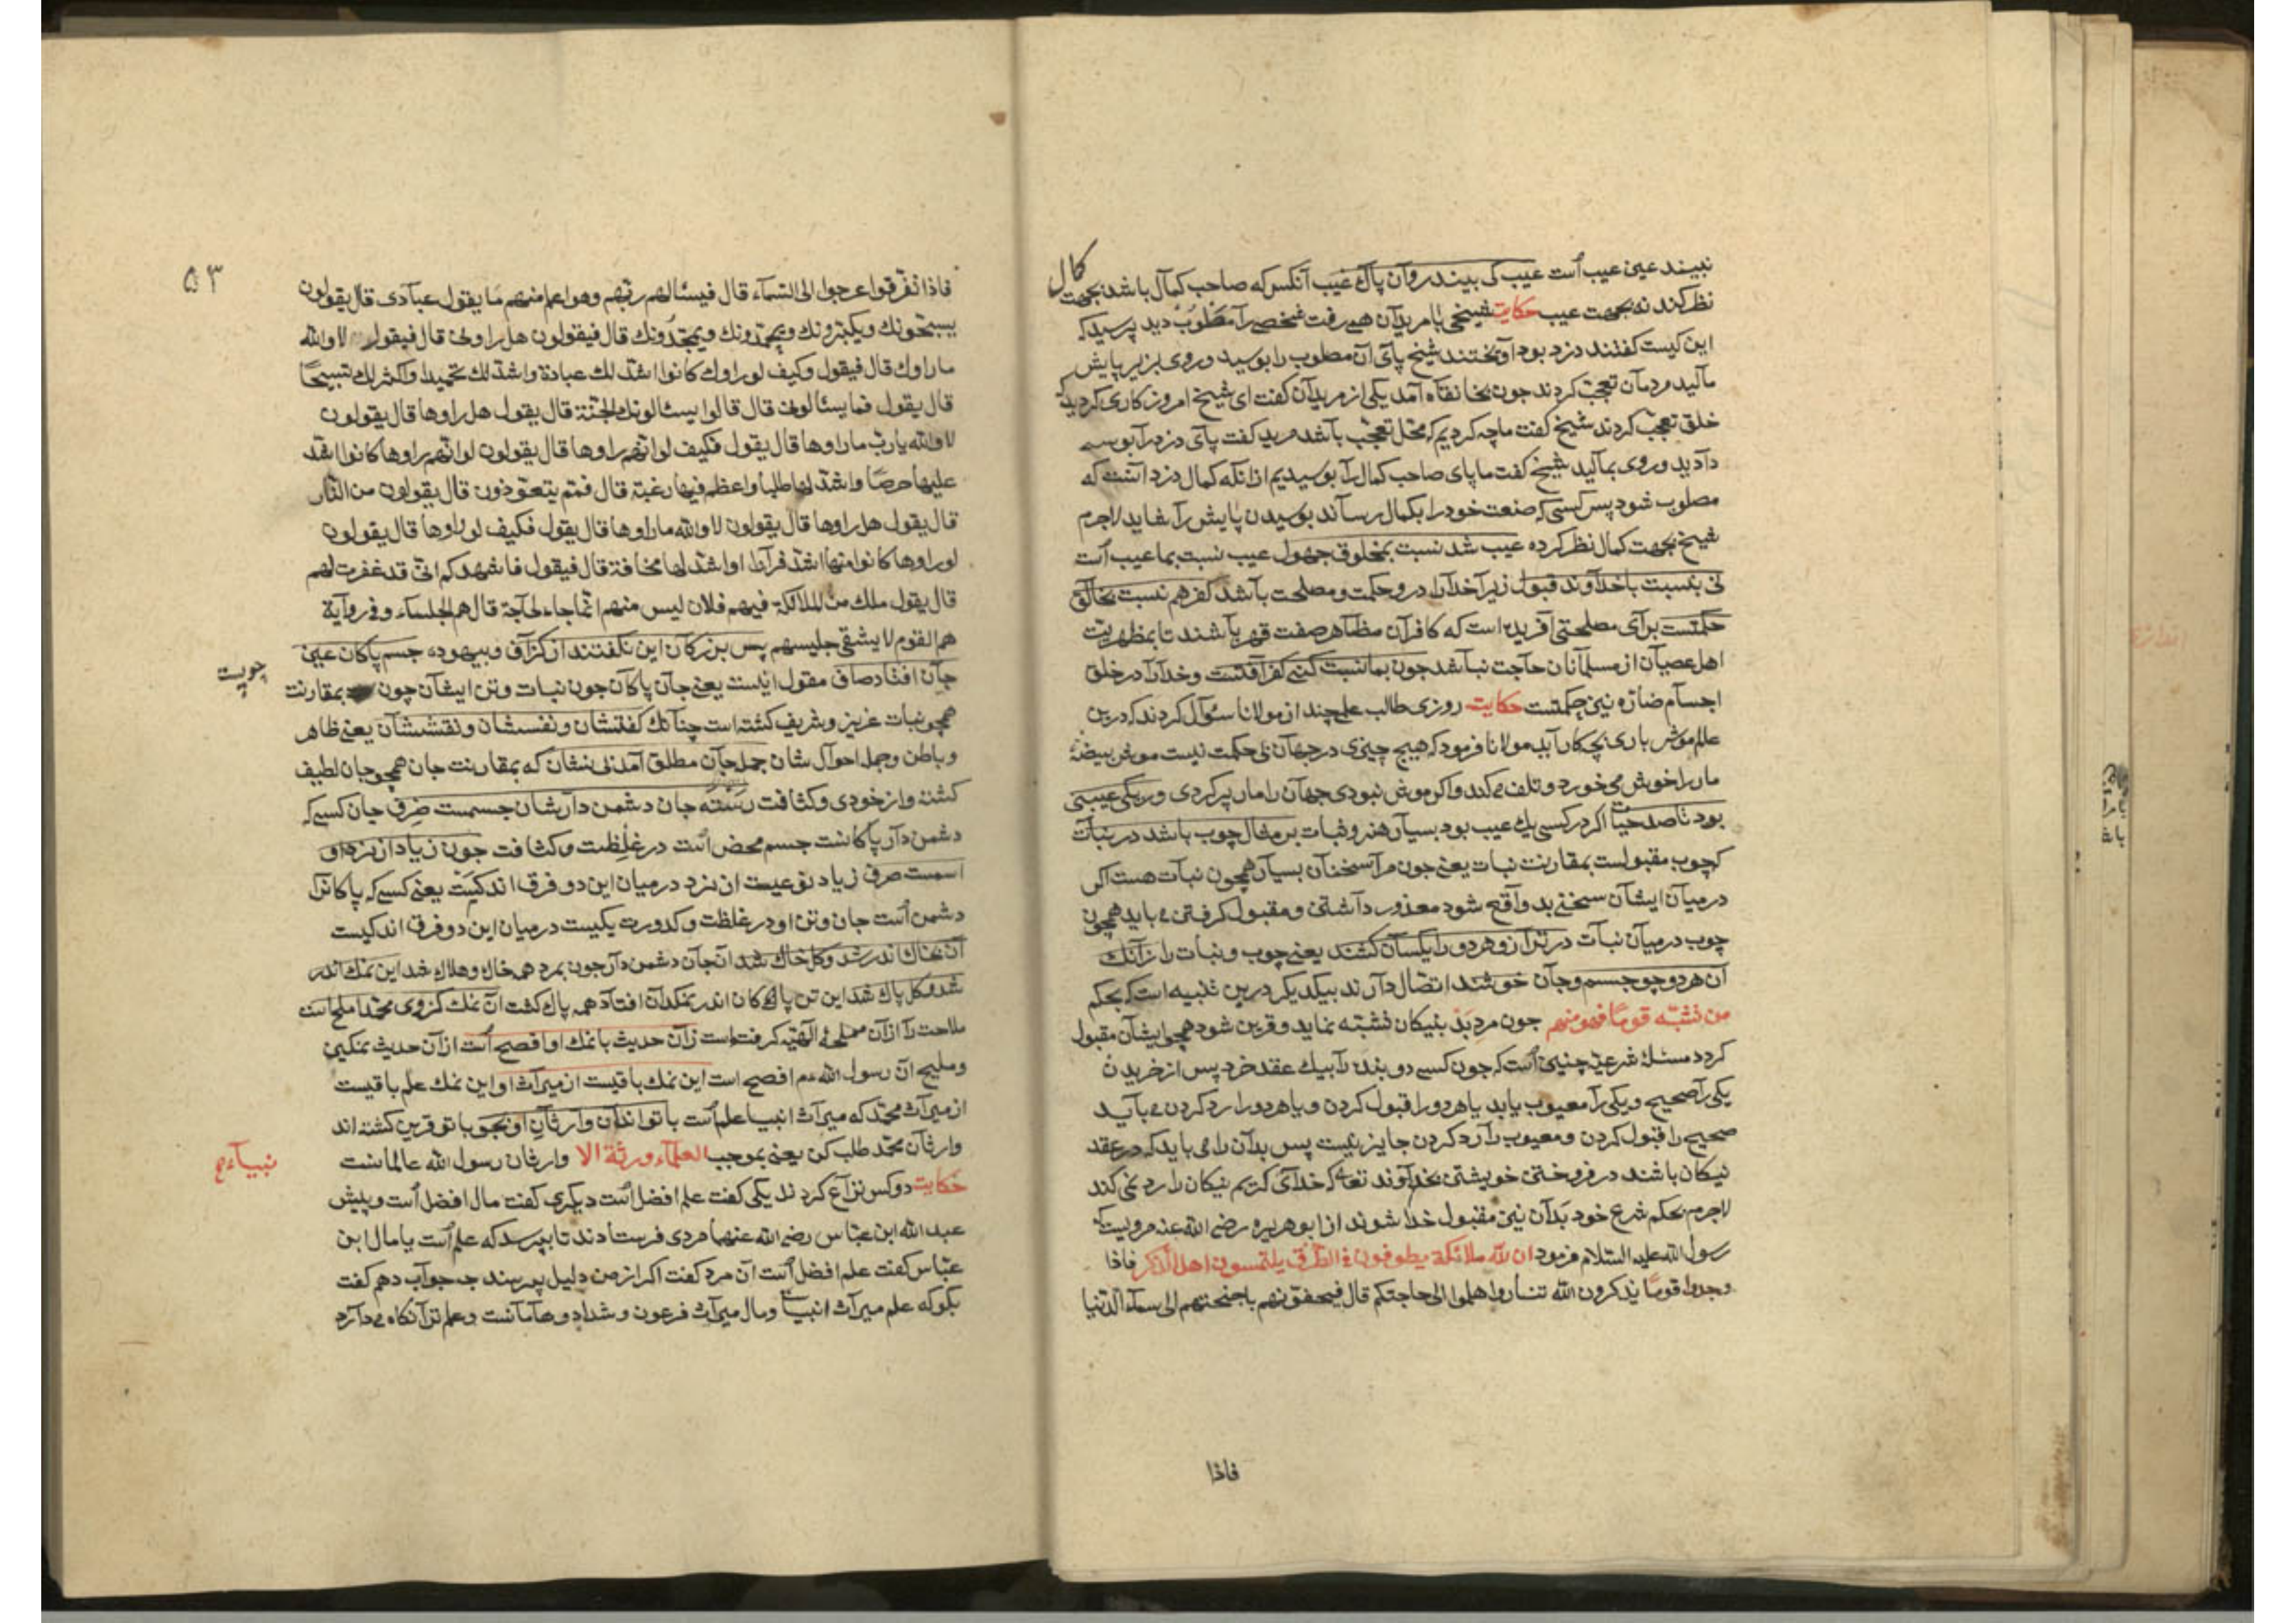 نبیند عین عیب است عیب کی بیند روان پاک غیب آنکس که صاحب کمال باشد بجهت کمال
نظر کند نه بجهت عیب حکایت شیخی با مریدان همی رفت شخصی را مصلوب دید پرسید که
این کیست کفتند دزد بود آویختند شیخ پای آن مصلوب را بوسید و روی بزیر پایش
مالید مردمان تعجب کردند چون بخانقاه آمد یکی از مریدان کفت ای شیخ امروز کاری کردید که
خلق تعجب کردند شیخ کفت ما چه کردیم که محل تعجب باشد مرید کفت پای دزد را بوسه
دادید و روی بمالید شیخ کفت ما پای صاحب کمال را بوسیدیم از انکه کمال دزد انست که
مصلوب شود پس کسی که صنعت خود را بکمال رساند بوسیدن پایش را شاید لاجرم
شیخ بجهت کمال نظر کرده عیب شد نسبت بمخلوق جهول عیب نسبت بما عیب است
نی بنسبت با خداوند قبول زیرا خدا را در و حکمت و مصلحت باشد کفر هم نسبت بخالق
حکمتست برای مصلحتی آفریده است که کافران مظاهر صفت قهر باشند تا بمظهریت
اهل عصیان از مسلمانان حاجت نباشد چون بما نسبت کنی کفر آفتست و خدا را در خلق
اجسام ضاره نیز حکمتست حکایت روزی طالب علمی چند از مولانا سؤال کردند که درین
عالم موش باری بچه کار آید مولانا فرمود که هیچ چیزی در جهان بی حکمت نیست موش بیضهٔ
مار را خوش می خورد و تلف می کند و اکر موش نبودی جهان را مار پر کردی ور یکی عیبی
بود تا صد حیات اکر در کسی یک عیب بود بسیار هنر و نبات بر مثال چوب باشد در نبات
که چوب مقبولست بمقارنت نبات یعنی چون مرا سخنان بسیار همچون نبات هست اکر
درمیان ایشان سخنی بد واقع شود معذور داشتن و مقبول کرفتن می باید همچون
چوب درمیان نبات در ترازو هر دو را یکسان کشند یعنی چوب و نبات را زانک
آن هر دو چو جسم و جان خوشند اتصال دارند بیکدیکر درین تنبیه است که بحکم
من تشبّه قوماً فهو منهم چون مرد بد بنیکان تشبّه نماید و قرین شود همچو ایشان مقبول
کردد مسئلهٔ شرعی چنین است که چون کسی دو بنده را بیک عقد خرد پس از خریدن
یکی را صحیح و یکی را معیوب یابد یا هر دو را قبول کردن و یا هر دو را رد کردن می باید
صحیح را قبول کردن و معیوب را رد کردن جایز نیست پس بدان را می باید که در عقد
نیکان باشند در فروختن خویشتن بخداوند تعالی که خدای کریم نیکان را رد نمی کند
لاجرم بحکم شرع خود بدان نیز مقبول خدا شوند از ابو هریره رضی الله عنه مرویست که
رسول الله علیه السلام فرمود ان لله ملائکة یطوفون فی الطرق یلتمسون اهل الذکر فاذا
وجدوا قوماً یذکرون الله تنادوا هلموا الی حاجتکم قال فیحفونهم باجنحتهم الی سماء الدنیا
فاذا
۵۳
فاذا تفرقوا عرجوا الی السماء قال فیسئالهم ربّهم وهو اعلم منهم ما یقول عبادی قال یقولون
یسبحونك ویکبرونك ویحمدونك ویمجّدونك قال فیقولون هل راونی قال فیقول لا والله
ما راوك قال فیقول وکیف لو راوك کانوا اشدّ لك عبادة واشدّ لك تحمیدا واکثر لك تسبیحاً
قال یقول فما یسئالونی قال قالوا یسئالونك الجنّة قال یقول هل راوها قال یقولون
لا والله یا ربّ ما راوها قال یقول فکیف لو انّهم راوها قال یقولون لو انّهم راوها کانوا اشدّ
علیها حرصاً واشدّ لها طلباً واعظم فیها رغبة قال فممّ یتعوّذون قال یقولون من النّار
قال یقول هل راوها قال یقولون لا والله ما راوها قال یقول فکیف لو راوها قال یقولون
لو راوها کانوا منها اشدّ فراراً واشدّ لها مخافة قال فیقول فاشهدکم انّی قد غفرت لهم
قال یقول ملك من الملائکة فیهم فلان لیس منهم انّما جاء لحاجة قال هم الجلساء وفی روایة
هم القوم لا یشقی جلیسهم پس بزرکان این نکفتند از کزاف و بیهوده جسم پاکان عین
جان افتاد صاف مقول اینست یعنی جان پاکان چون نبات و تن ایشان چون بمقارنت
چوبست
همچو نبات عزیز و شریف کشته است چنانك کفتشان و نفسشان و نقششان یعنی ظاهر
و باطن و جمله احوال شان جمله جان مطلق آمد بی نشان که بمقارنت جان همچو جان لطیف
کشته و از خودی و کثافت رسته جان دشمن دارشان جسمست صرف جان کسی که
دشمن دار پاکانست جسم محض است در غلظت و کثافت چون زیاد از نرد او
اسمست صرف زیاد نوعیست از نرد درمیان این دو فرق اندکیست یعنی کسی که پاکانرا
دشمن است جان و تن او در غلظت و کدورت یکیست درمیان این دو فرق اندکیست
آن بخاك اندر شد و کل خاك شد ان جان دشمن دار چون بمرد همه خاك و هلاك شد این نمك اندر
شد و کل پاك شد این تن پاکان اندر نمکدان افتاد همه پاك کشت آن نمك کزوی محمد املح است
ملاحت را از آن مملحهٔ الهیّه کرفته است زان حدیث با نمك او افصح است از آن حدیث نمکین
و ملیح آن رسول الله عم افصح است این نمك باقیست از میراث او این نمك علم باقیست
از میراث محمّد که میراث انبیا علم است با تواند آن وارثان او بجو با تو قرین کشته اند
وارثان محمّد طلب کن یعنی بموجب العلماء ورثة الا وارثان رسول الله عالمانست
نبیاء
حکایت دو کس نزاع کردند یکی کفت علم افضل است دیکری کفت مال افضل است و پیش
عبد الله ابن عبّاس رضی الله عنهما مردی فرستادند تا بپرسد که علم است یا مال ابن
عبّاس کفت علم افضل است آن مرد کفت اکر از من دلیل پرسند چه جواب دهم کفت
بکو که علم میراث انبیا و مال میراث فرعون و شداد و هامانست و علم ترا نکاه می دارد